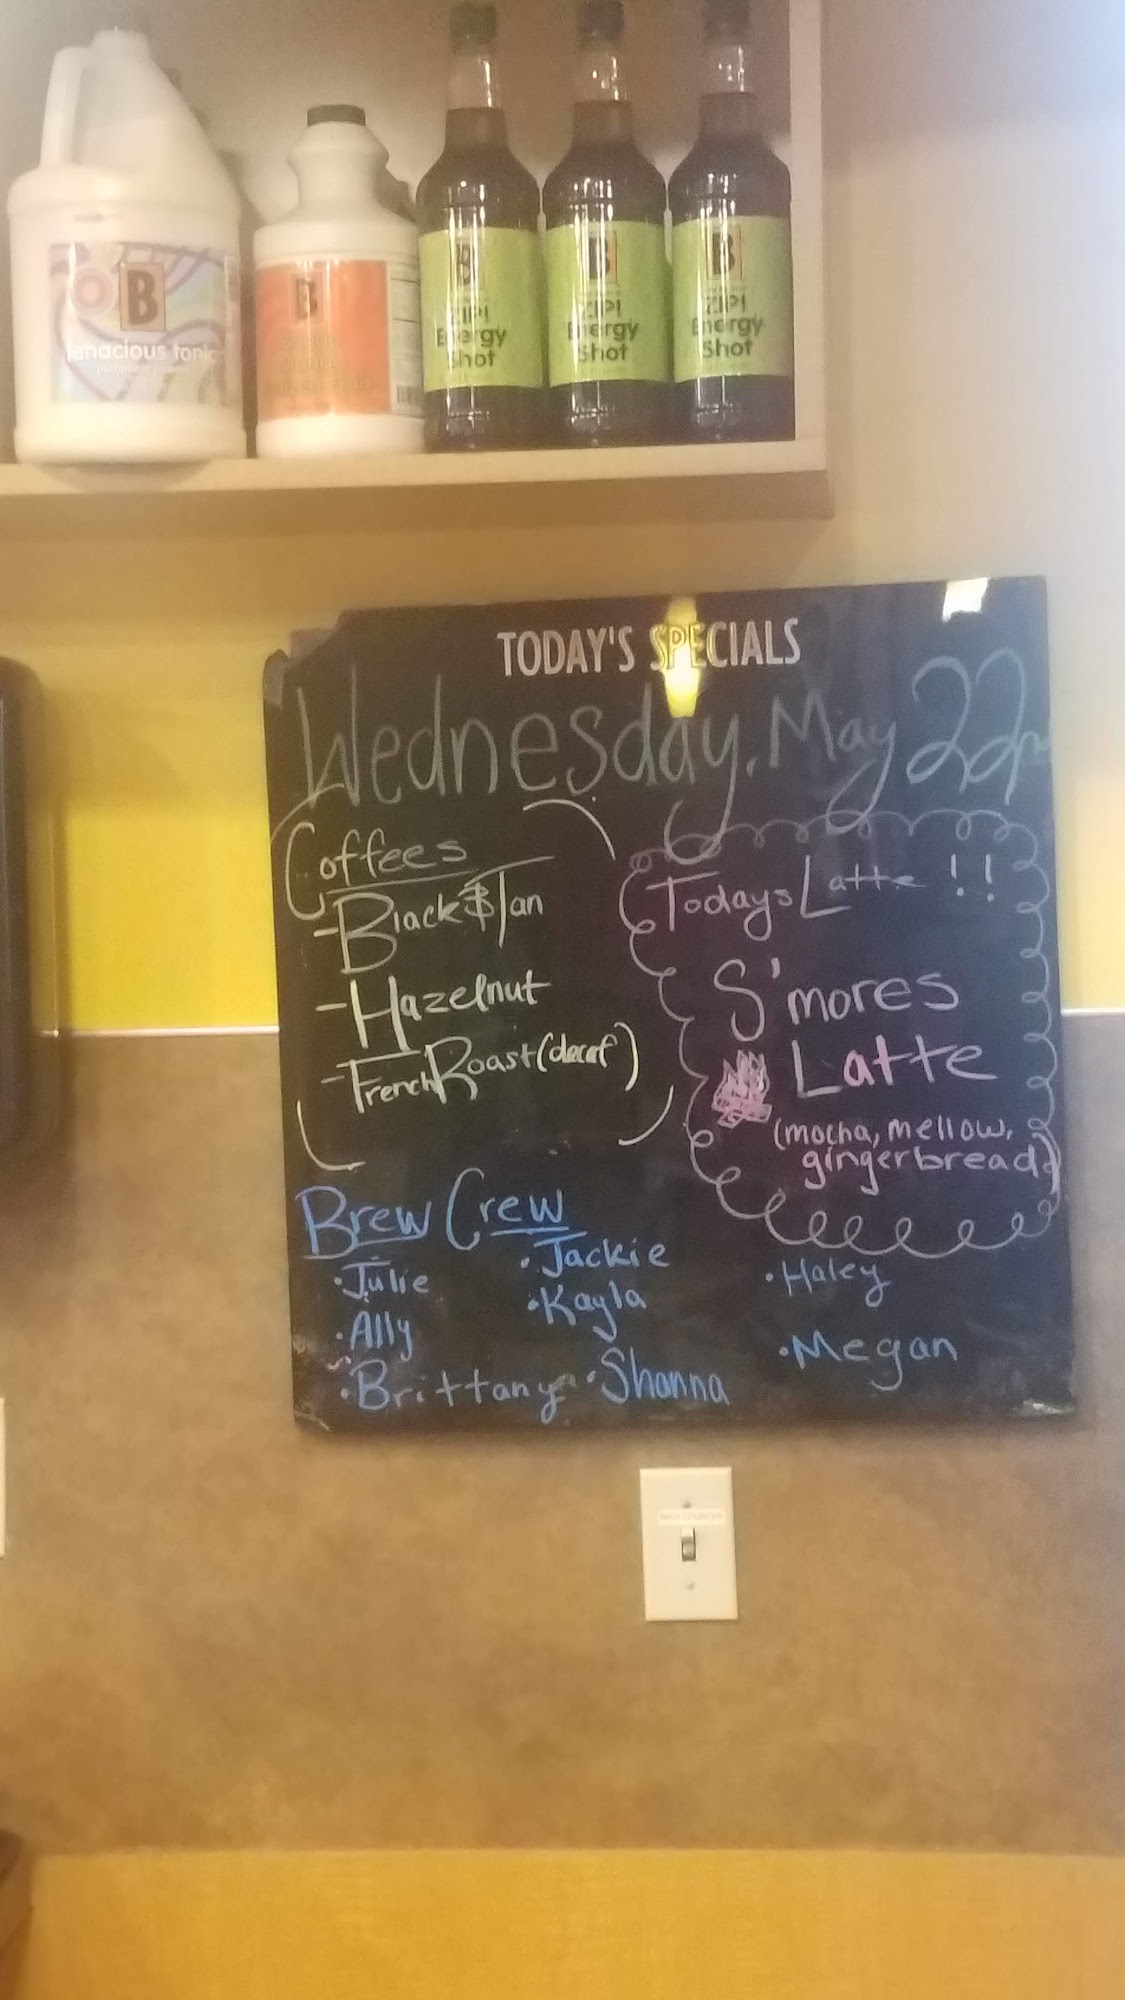 B
tenacious tonic
B
B
ZIP!
Energy
Shot
B
ZIP!
Energy
Shot
B
ZIP!
Energy
Shot
TODAY'S SPECIALS
Wednesday, May 22nd
Coffees
-Black & Tan
-Hazelnut
-French Roast (decaf)
Todays Latte !!
S'mores
Latte
(mocha, mellow,
gingerbread)
Brew Crew
·Julie
·Ally
·Brittany
·Jackie
·Kayla
·Shanna
·Haley
·Megan
BACK COUNTER